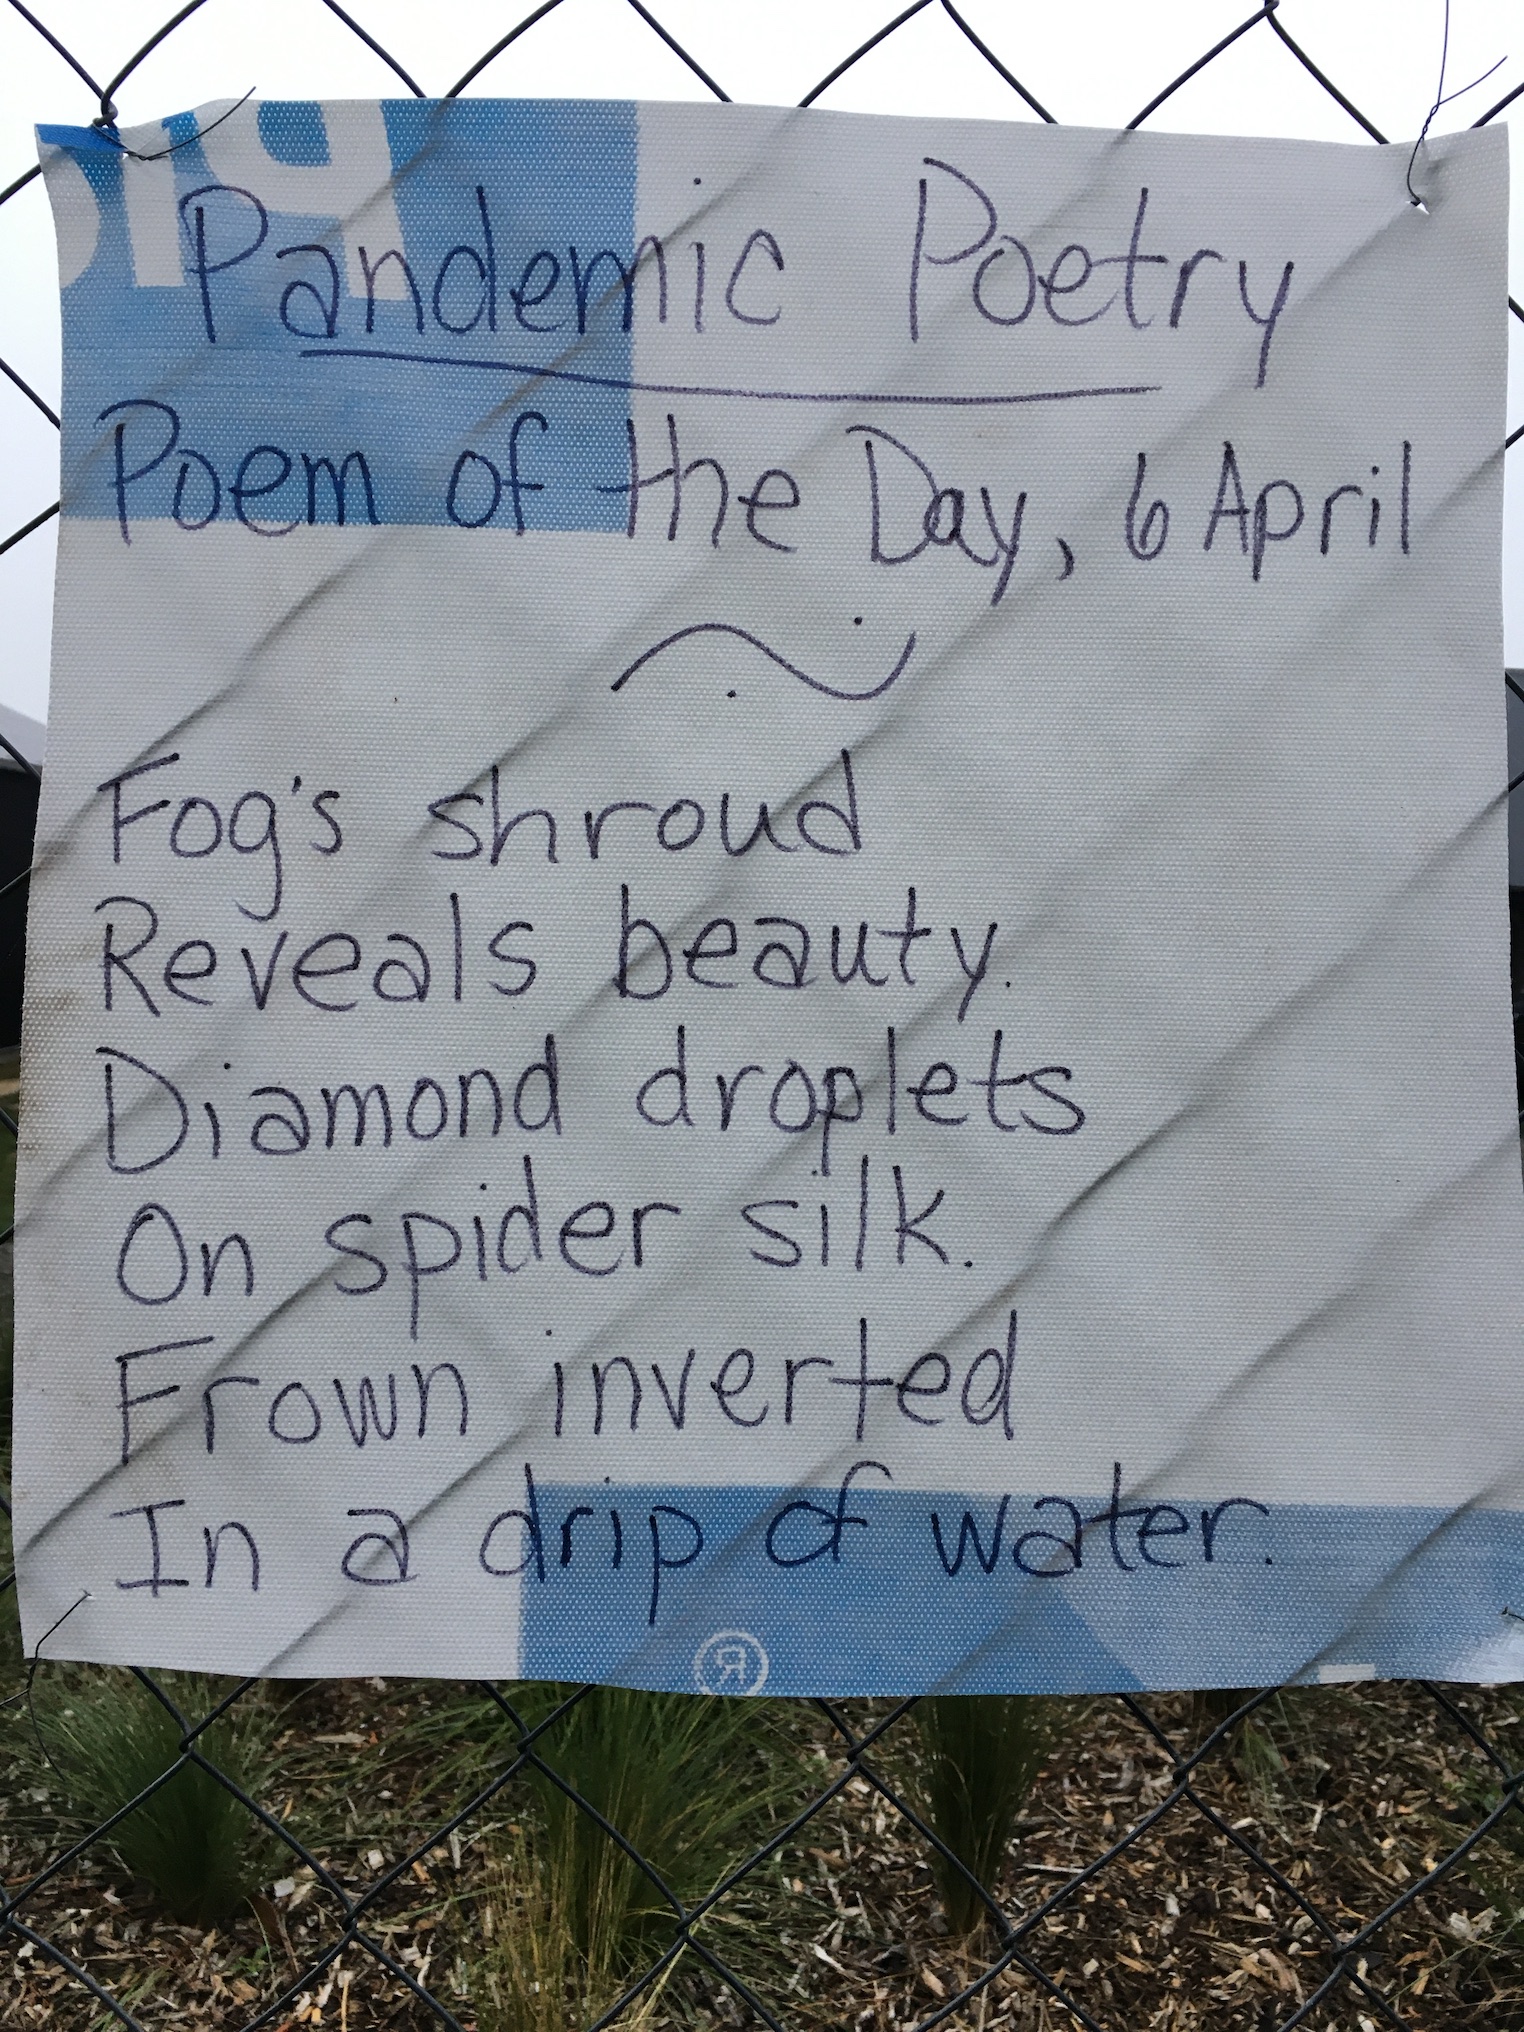 Pandemic Poetry
Poem of the Day, 6 April
Fog's shroud
Reveals beauty.
Diamond droplets
On spider silk.
Frown inverted
In a drip of water.
®